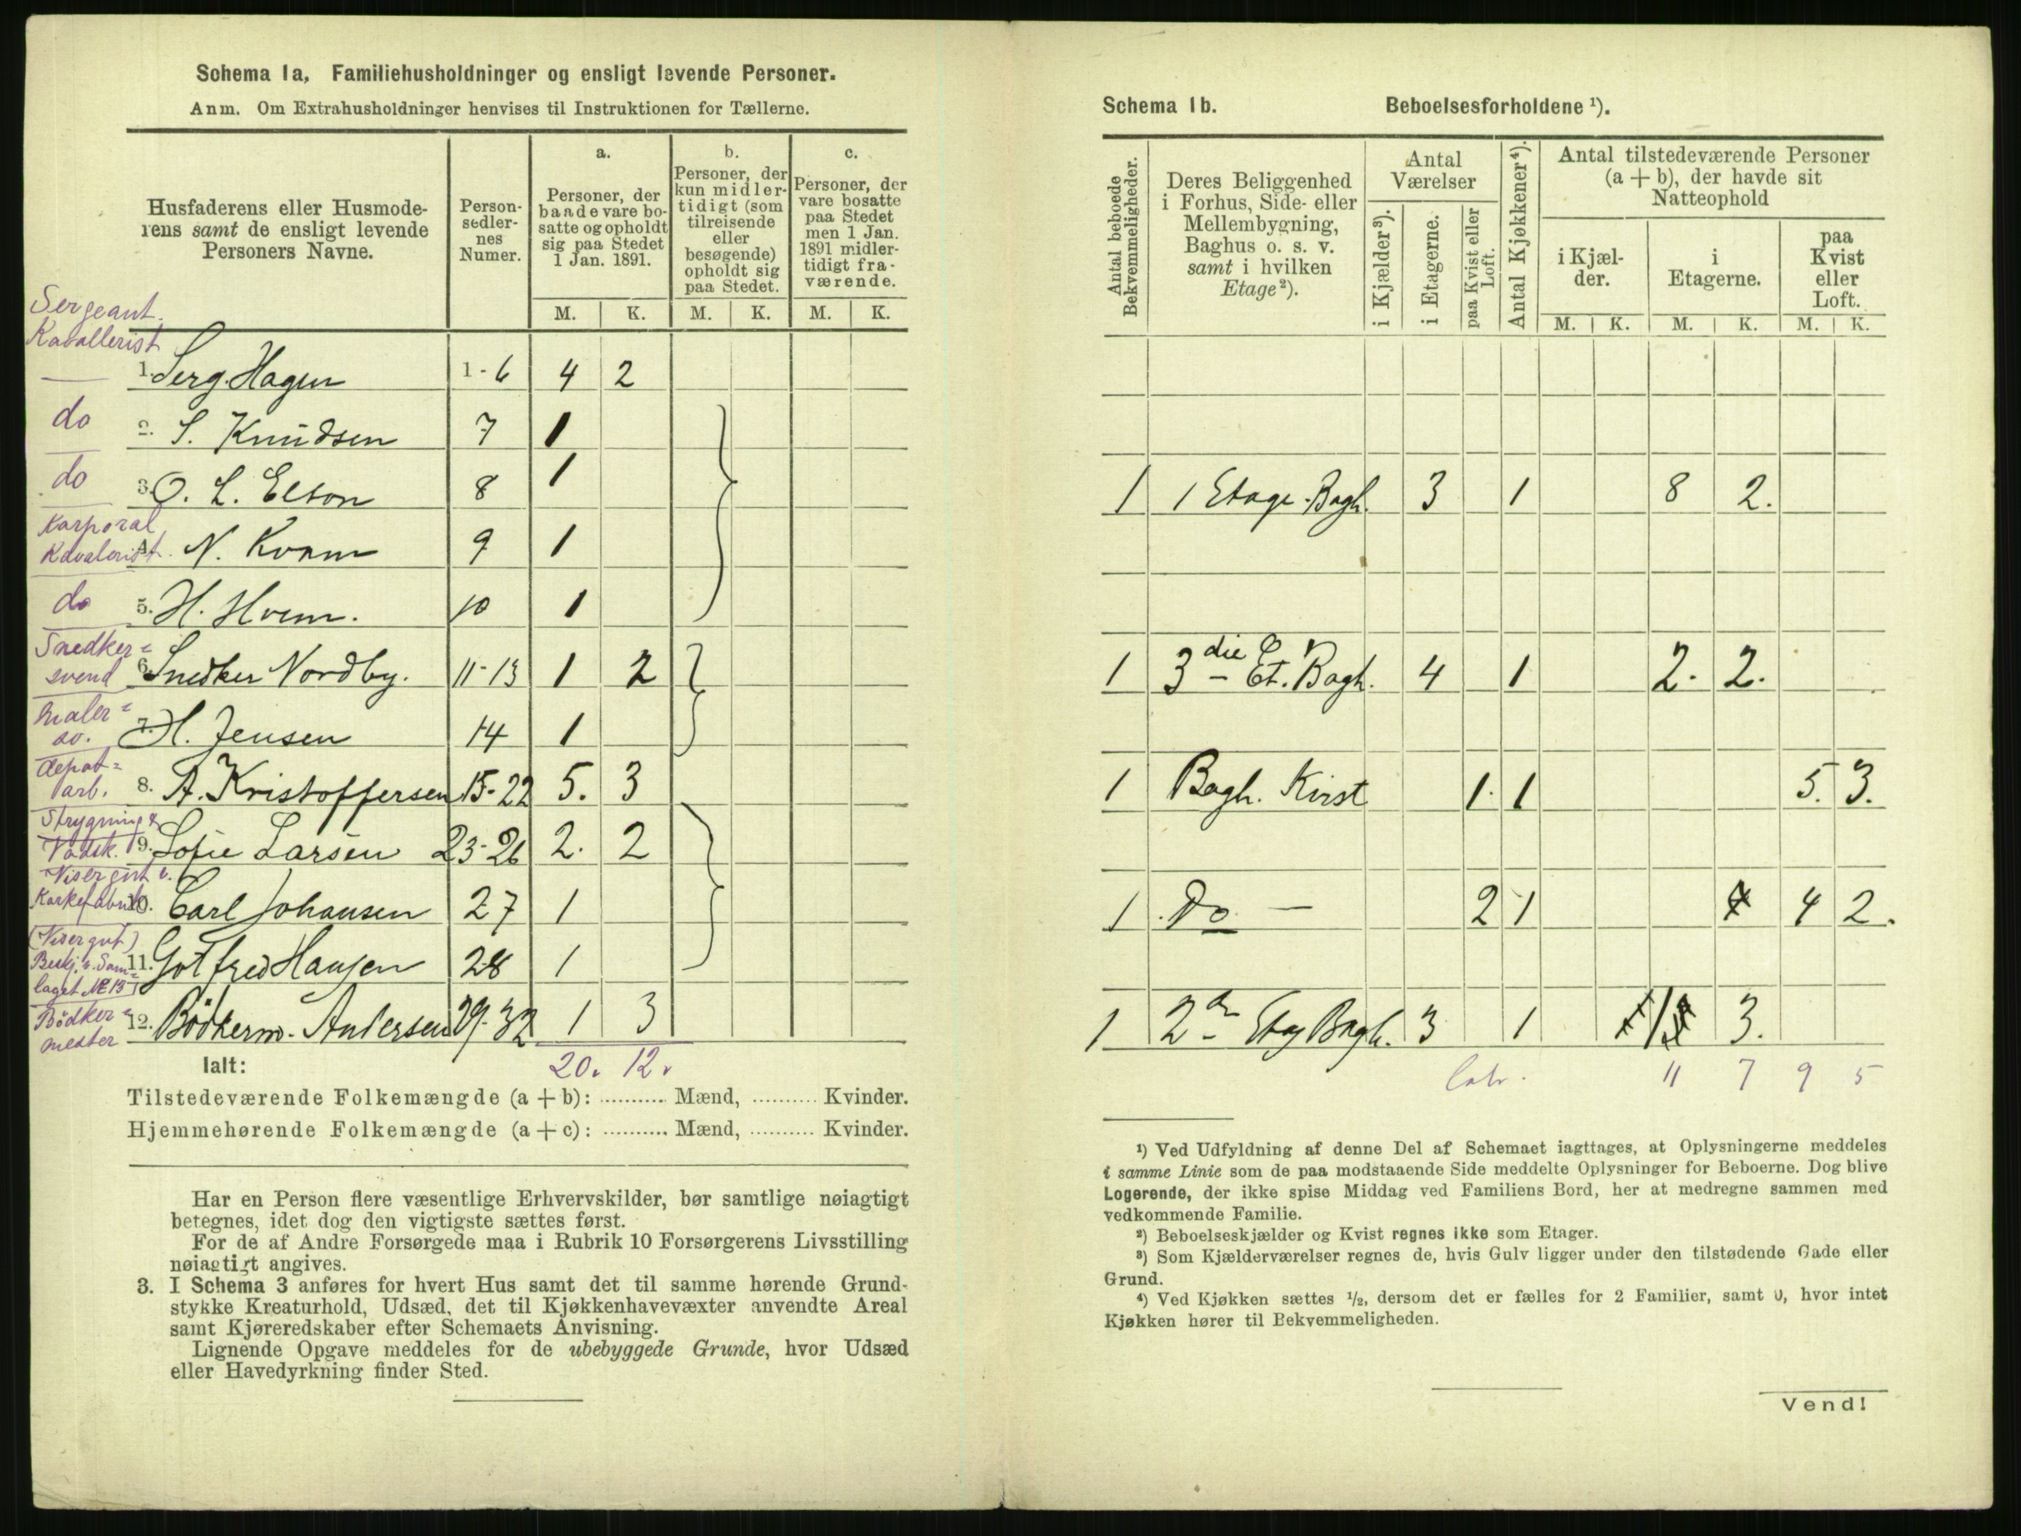 Schema 1a, Familiehusholdninger og ensligt levende Personer.
Anm. Om Extrahusholdninger henvises til Instruktionen for Tællerne.
Husfaderens eller Husmode-
rens samt de ensligt levende
Personers Navne.
Person-
sedler-
nes
Numer.
a.
Personer, der
baade vare bo-
satte og opholdt
sig paa Stedet
1 Jan. 1891.
b.
Personer, der
kun midler-
tidigt (som
tilreisende
eller
besøgende)
opholdt sig
paa Stedet.
c.
Personer, der
vare bosatte
paa Stedet
men 1 Jan.
1891 midler-
tidigt fra-
værende.
M. K. M. K. M. K.
Sergeant.
Kavallerist
1. Serg. Hagen 1-6 4 2
do 2. S. Knudsen 7 1
do 3. O. L. Elton 8 1
Korporal
Kavalerist. 4. N. Kvam 9 1
do 5. H. Hvem. 10 1
Snedker=
svend 6. Snedker Nordby. 11-13 1 2
Maler=
sv. 7. H. Jensen 14 1
depot=
arb. 8. A. Kristoffersen 15-22 5. 3
Strygning &
Vadsk. 9. Sofie Larsen 23-26 2. 2
Visergut v.
Korkefabrik 10. Carl Johansen 27 1
(Visergut)
Beskj. v. Sam=
laget № 13 11. Gotfred Hansen 28 1
Bödker=
mester 12. Bödkerm. Andersen 29-32 1 3
Ialt: 20. 12.
Tilstedeværende Folkemængde (a + b): .......... Mænd, .......... Kvinder.
Hjemmehørende Folkemængde (a + c): .......... Mænd, .......... Kvinder.
Har en Person flere væsentlige Erhvervskilder, bør samtlige nøiagtigt
betegnes, idet dog den vigtigste sættes først.
For de af Andre Forsørgede maa i Rubrik 10 Forsørgerens Livsstilling
nøiagtigt angives.
3. I Schema 3 anføres for hvert Hus samt det til samme hørende Grund-
stykke Kreaturhold, Udsæd, det til Kjøkkenhavevæxter anvendte Areal
samt Kjøreredskaber efter Schemaets Anvisning.
Lignende Opgave meddeles for de ubebyggede Grunde, hvor Udsæd
eller Havedyrkning finder Sted.
Schema 1b. Beboelsesforholdene ¹).
Antal beboede
Bekvemmeligheder.
Deres Beliggenhed
i Forhus, Side- eller
Mellembygning,
Baghus o. s. v.
samt i hvilken
Etage²).
Antal
Værelser
i Kjælder³).
i Etagerne.
paa Kvist eller
Loft.
Antal Kjøkkener⁴).
Antal tilstedeværende Personer
(a + b), der havde sit
Natteophold
i Kjæl-
der.
i
Etagerne.
paa
Kvist
eller
Loft.
M. K. M. K. M. K.
1 1 Etage. Bagh. 3 1 8 2.
1 3die Et. Bagh. 4 1 2. 2.
1 Bagh. Kvist 1. 1 5. 3.
1 Do — 2 1 4 2.
1 2den Etag Bagh. 3 1 1 3.
11 7 9 5
¹) Ved Udfyldning af denne Del af Schemaet iagttages, at Oplysningerne meddeles
i samme Linie som de paa modstaaende Side meddelte Oplysninger for Beboerne. Dog blive
Logerende, der ikke spise Middag ved Familiens Bord, her at medregne sammen med
vedkommende Familie.
²) Beboelseskjælder og Kvist regnes ikke som Etager.
³) Som Kjælderværelser regnes de, hvis Gulv ligger under den tilstødende Gade eller
Grund.
⁴) Ved Kjøkken sættes ½, dersom det er fælles for 2 Familier, samt 0, hvor intet
Kjøkken hører til Bekvemmeligheden.
Vend!